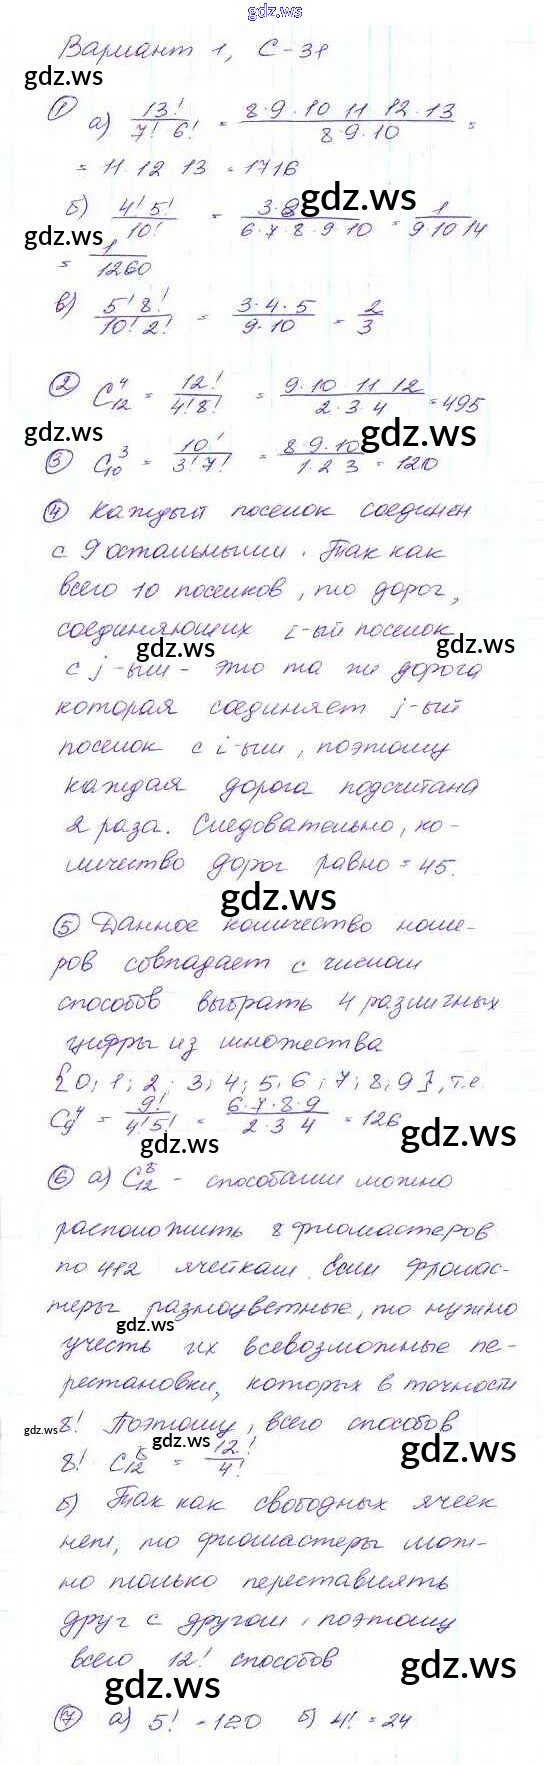 gdz.ws
Вариант 1, С-31
gdz.ws
① а) 13! / 7! 6! = 8·9·10 11 12·13 / 8·9·10 =
= 11 12 13 = 1716
gdz.ws
б) 4! 5! / 10! = / 6·7·8·9·10 = 1 / 9·10 14
gdz.ws
= 1 / 1260
в) 5! 8! / 10! 2! = 3·4·5 / 9·10 = 2 / 3
② C⁴₁₂ = 12! / 4! 8! = 9·10 11 12 / 2·3·4 = 495
gdz.ws
gdz.ws
③ C³₁₀ = 10! / 3! 7! = 8·9·10 / 1·2 3 = 120
④ Каждый поселок соединен
с 9 остальными. Так как
всего 10 поселков, то дорог,
соединяющих i-ый поселок
gdz.ws
gdz.ws
с j-ым - это та же дорога
которая соединяет j-ый
поселок с i-ым, поэтому
каждая дорога подсчитана
2 раза. Следовательно, ко-
личество дорог равно = 45.
gdz.ws
⑤ Данное количество номе-
ров совпадает с числом
способов выбрать 4 различных
цифры из множества
{0; 1; 2; 3; 4; 5, 6; 7; 8; 9}, т.е.
C⁴₉ = 9! / 4! 5! = 6·7·8·9 / 2·3 4 = 126
gdz.ws
gdz.ws
⑥ а) C⁸₁₂ - способами можно
расположить 8 фломастеров
по 412 ячейкам. Если фломас-
теры разноцветные, то нужно
gdz.ws
учесть их всевозможные пе-
рестановки, которых в точности
8! Поэтому, всего способов
gdz.ws
gdz.ws
gdz.ws
8! C⁸₁₂ = 12! / 4!
б) Так как свободных ячеек
нет, то фломастеры мож-
но только переставлять
друг с другом, поэтому
всего 12! способов
gdz.ws
gdz.ws
⑦ а) 5! = 120 б) 4! = 24